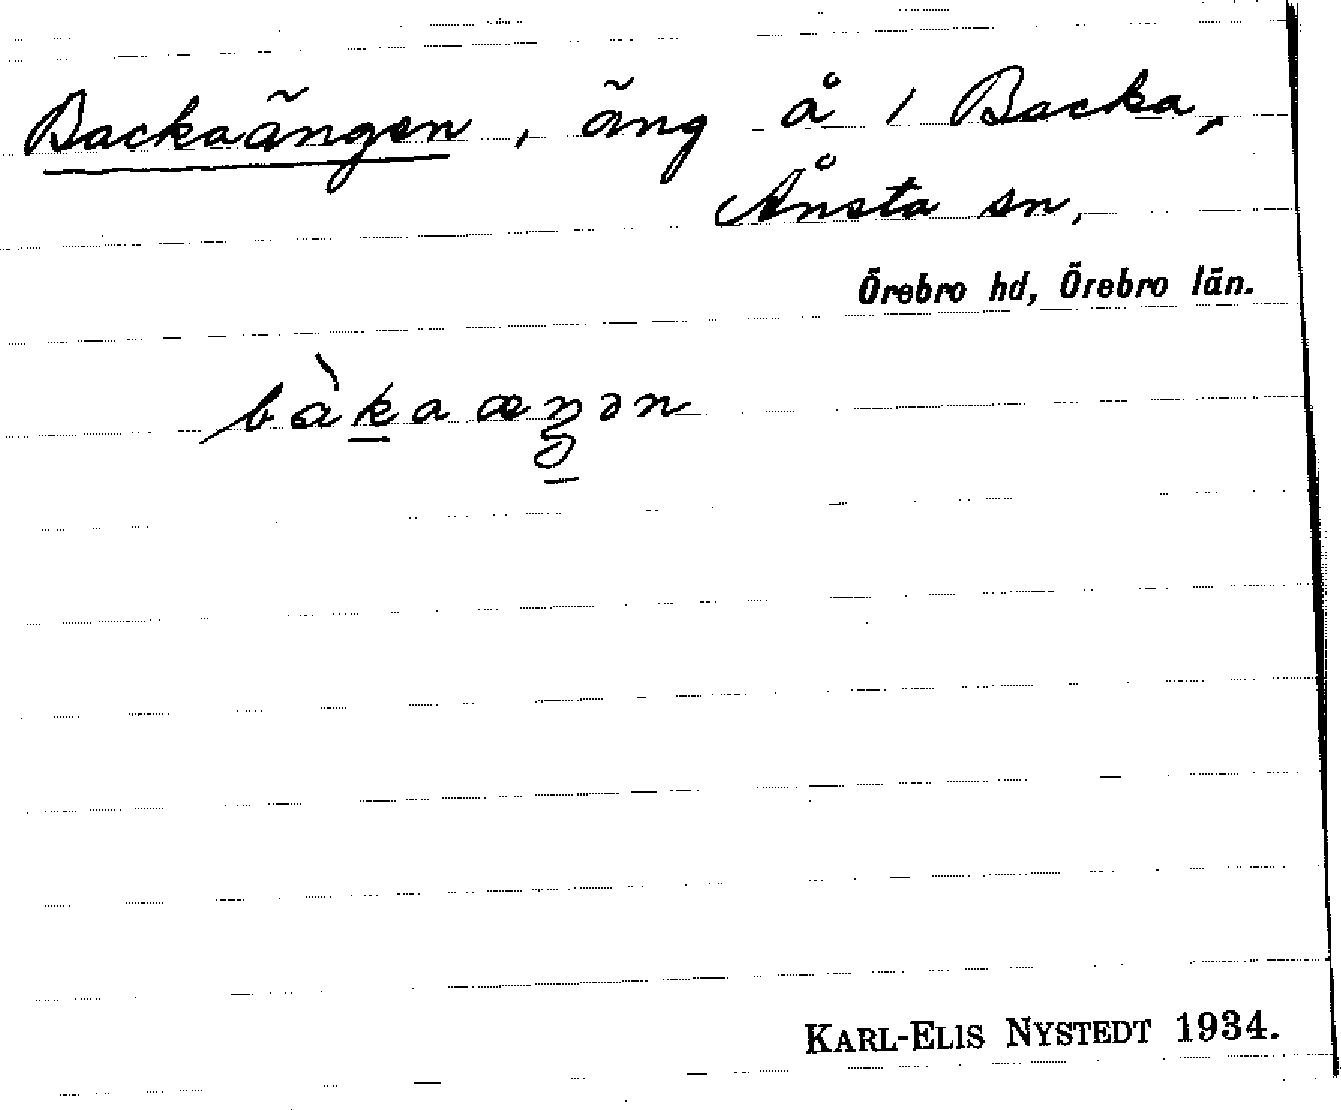 Backaängen, äng å 1 Backa,
Ånsta sn,
Örebro hd, Örebro län.
bàk̲aæŋ̲ən
KARL-ELIS NYSTEDT 1934.